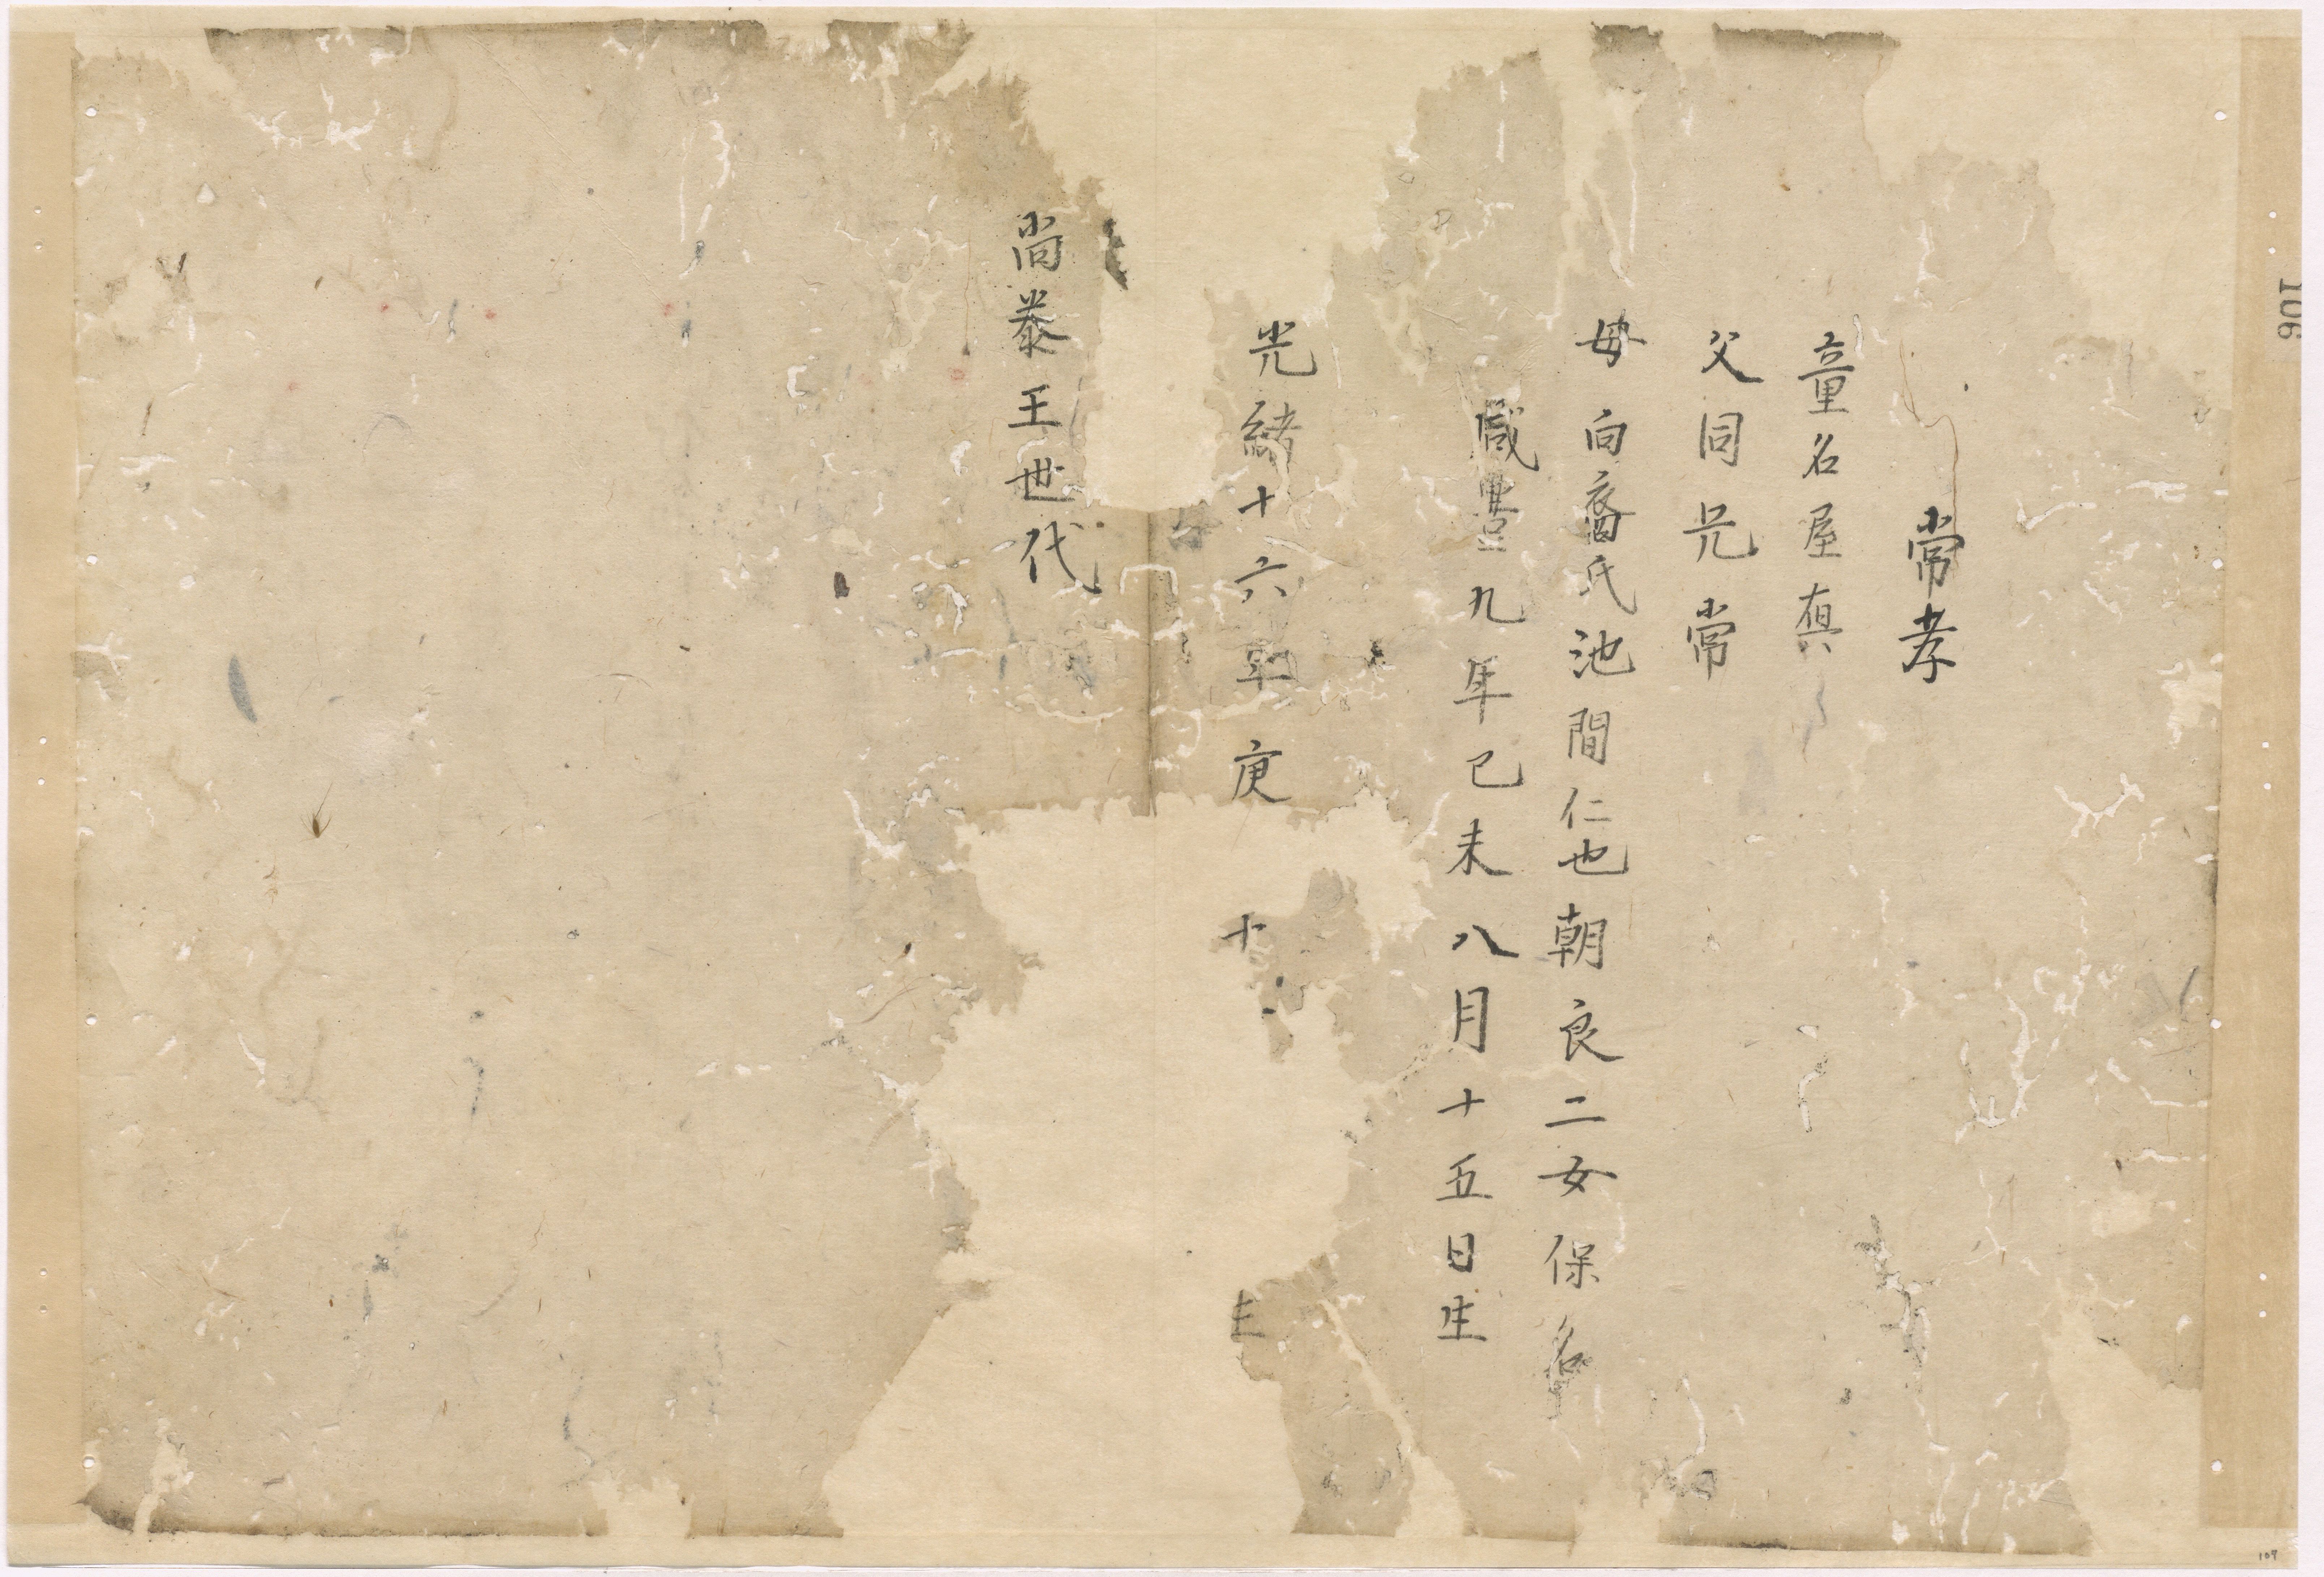 常孝
童名屋真
父同兄常
母向裔氏池間仁也朝良二女保名
咸豊九年己未八月十五日生
光緒十六年庚 十 生
尚泰王世代
106
107